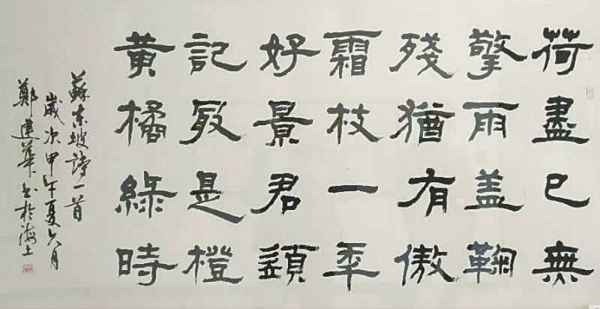 荷盡已無
擎雨盖鞠
殘猶有傲
霜枝一秊
好景君須
記冣是橙
黄橘綠時
蘇東坡詩一首
歲次甲午夏六月
鄭建華書於海上